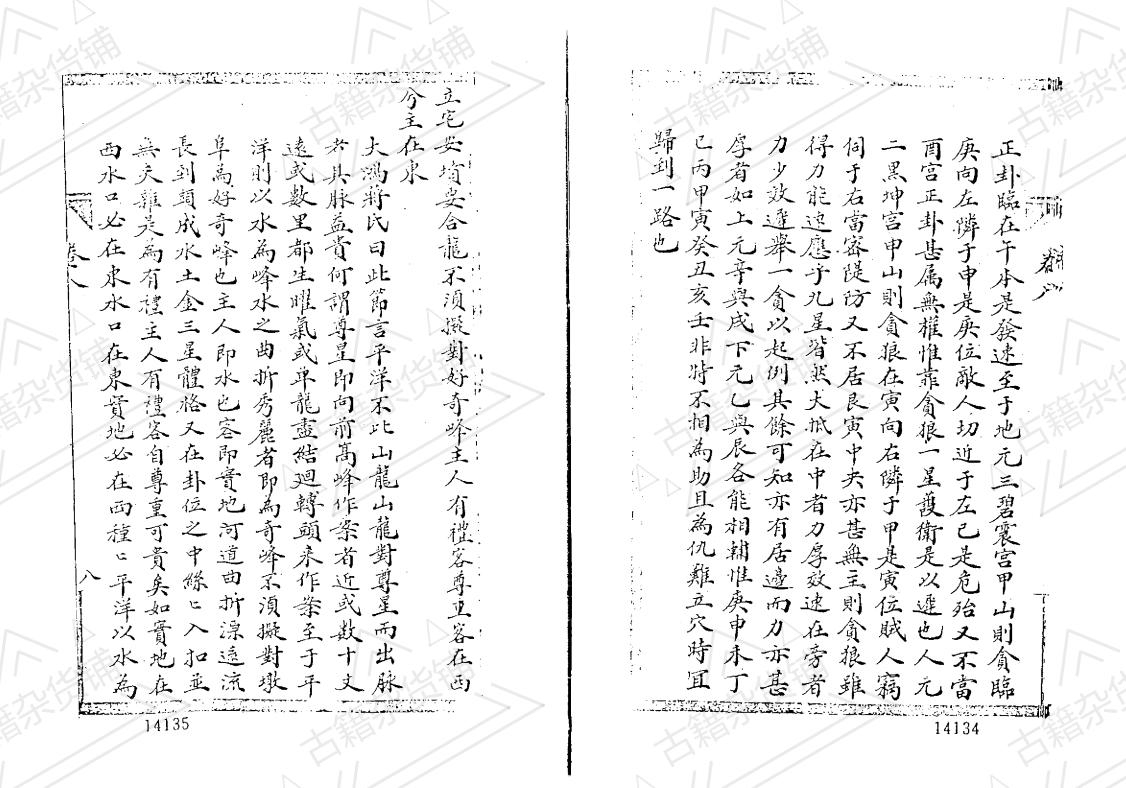 正卦臨在午本是發速至于地元三碧震宮甲山則貪臨
庚向左憐于申是庚位敵人切近于左已是危殆又不當
酉宮正卦甚属無權惟靠貪狼一星護衛是以遲也人元
二黑坤宮甲山則貪狼在寅向右隣于甲是寅位賊人竊
伺于右當審隄防又不居艮寅中夾亦甚無主則貪狼雖
得力能速應乎九星皆然大抵在中者力厚效速在旁者
力少效遲舉一貪以起例其餘可知亦有居邉而力亦甚
厚者如上元辛與戌下元乙與辰各能相輔惟庚申未丁
巳丙甲寅癸丑亥壬非特不相為助且為仇難立穴時宜
歸到一路也
卷八
14134
立宅安墳要合龍不須擬對好奇峰主人有禮客尊重客在西
兮主在東
大鴻蔣氏曰此節言平洋不比山龍山龍對尊星而出脉
者其脉益貴何謂尊星即向前高峰作案者近或数十丈
遠或數里都生曜氣或単龍盡結廻轉頭来作案至于平
洋則以水為峰水之曲折秀麗者即為奇峰不須擬對墩
阜高好奇峰也主人即水也客即實地河道曲折深遠流
長到頭成水土金三星體格又在卦位之中絲〻入扣並
無夹雜是為有禮主人有禮客自尊重可貴矣如實地在
西水口必在東水口在東實地必在西種〻平洋以水為
卷八
八
14135
古籍杂货铺